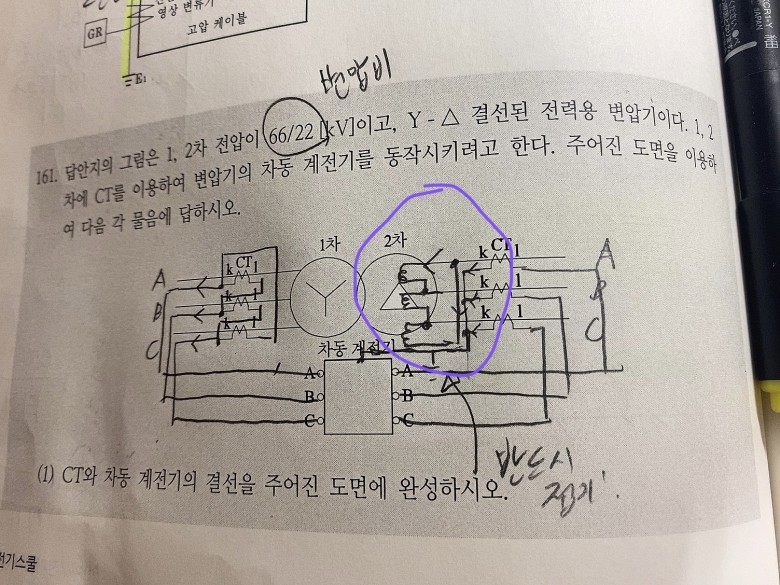 영상 변류기
GR
고압 케이블
E₁
변압비
161. 답안지의 그림은 1, 2차 전압이 66/22 [kV]이고, Y - △ 결선된 전력용 변압기이다. 1, 2
차에 CT를 이용하여 변압기의 차동 계전기를 동작시키려고 한다. 주어진 도면을 이용하
여 다음 각 물음에 답하시오.
1차 2차
A k CT l k CT l A
B k l k l B
C k l k l C
차동 계전기
A A
B B
C C
반드시
접지!
(1) CT와 차동 계전기의 결선을 주어진 도면에 완성하시오.
전기스쿨